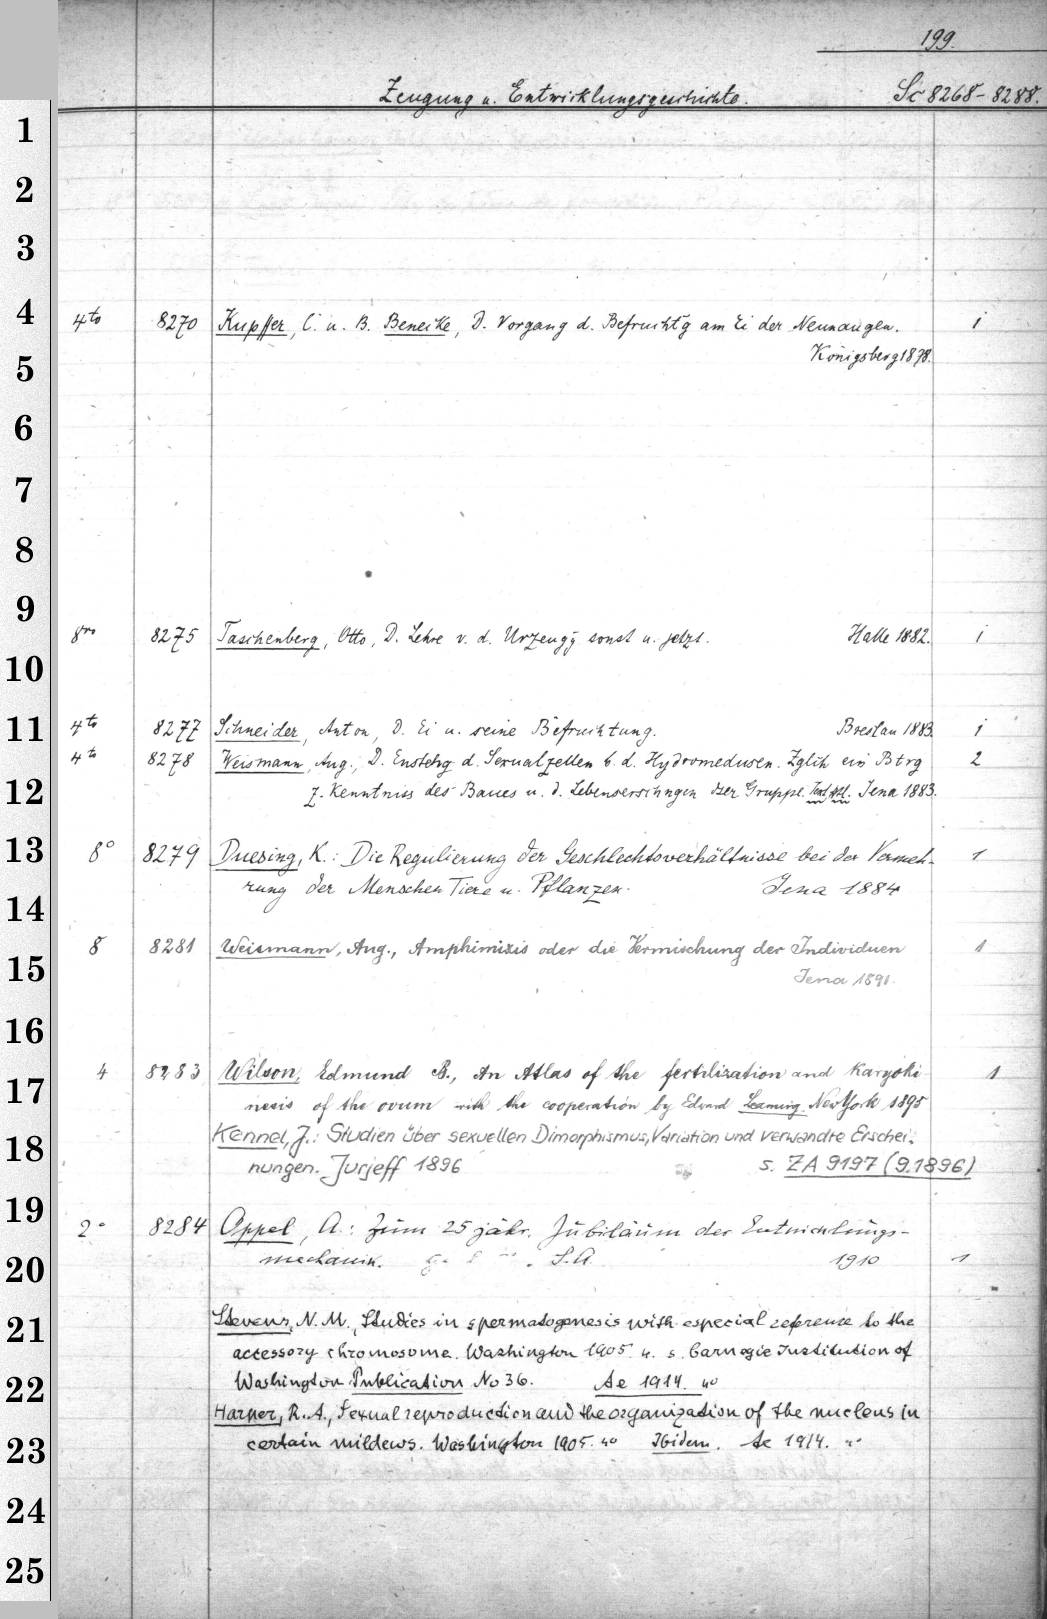 199.
Zeugung u. Entwicklungsgeschichte. Sc 8268-8288.
1
2
3
4
4to 8270 Kupffer, C. u. B. Benecke, D. Vorgang d. Befruchtg am Ei der Neunaugen. 1
Königsberg 1878.
5
6
7
8
9
8vo 8275 Taschenberg, Otto, D. Lehre v. d. Urzeugg sonst u. jetzt. Halle 1882. 1
10
11
4to 8277 Schneider, Anton, D. Ei u. seine Befruchtung. Breslau 1883. 1
4to 8278 Weismann, Aug., D. Enstehg d. Sexualzellen b. d. Hydromedusen. Zglch ein Btrg 2
12
z. Kenntniss des Baues u. d. Lebenserschngen dser Gruppe. Jena 1883.
13
8° 8279 Duesing, K.: Die Regulierung der Geschlechtsverhältnisse bei der Vermeh- 1
rung der Menschen Tiere u. Pflanzen. Jena 1884
14
8 8281 Weismann, Aug., Amphimixis oder die Vermischung der Individuen 1
15
Jena 1891.
16
4 8283 Wilson, Edmund B., An Atlas of the fertilization and Karyoki- 1
17
nesis of the ovum with the cooperation by Edward Leaming. New York 1895
Kennel, J.: Studien über sexuellen Dimorphismus, Variation und verwandte Erschei-
18
nungen. Jurjeff 1896 s. ZA 9197 (9.1896)
19
2° 8284 Oppel, A.: Zum 25 jähr. Jubiläum der Entwicklungs-
mechanik. S.A. 1910 1
20
21
Stevens, N. M., Studies in spermatogenesis with especial reference to the
accessory chromosome. Washington 1905. 4. s. Carnegie Institution of
22
Washington Publication No 36. Ae 1914. 4o
Harper, R. A., Sexual reproduction and the organization of the nucleus in
23
certain mildews. Washington 1905. 4o Ibidem. Ae 1914. 4o
24
25